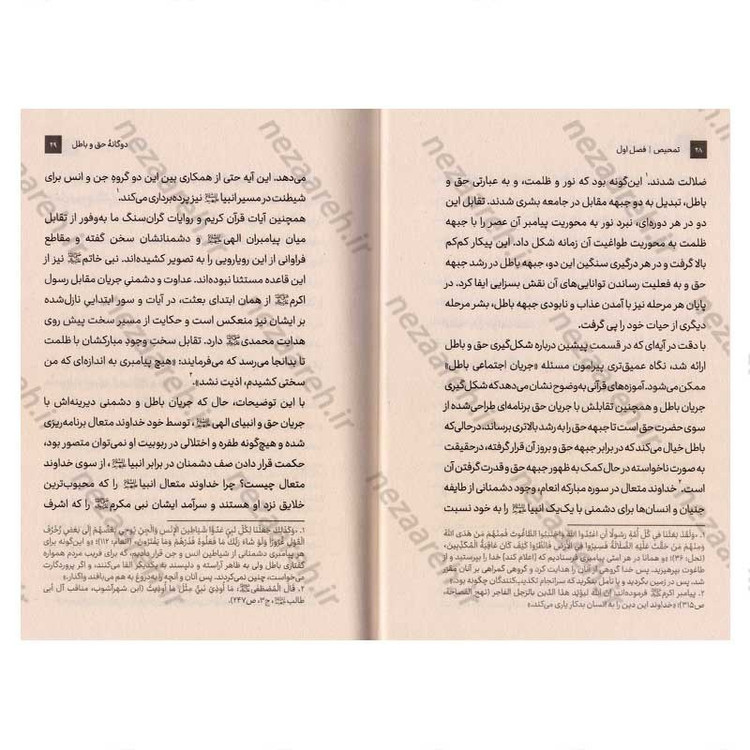 ۲۸ تمحیص | فصل اول
ضلالت شدند.۱ این‌گونه بود که نور و ظلمت، و به عبارتی حق و
باطل، تبدیل به دو جبهه مقابل در جامعه بشری شدند. تقابل این
دو در هر دوره‌ای، نبرد نور به محوریت پیامبر آن عصر را با جبهه
ظلمت به محوریت طواغیت آن زمانه شکل داد. این پیکار کم‌کم
بالا گرفت و در هر درگیری سنگین این دو، جبهه باطل در رشد جبهه
حق و به فعلیت رساندن توانایی‌های آن نقش بسزایی ایفا کرد. در
پایان هر مرحله نیز با آمدن عذاب و نابودی جبهه باطل، بشر مرحله
دیگری از حیات خود را پی گرفت.
با دقت در آیه‌ای که در قسمت پیشین درباره شکل‌گیری حق و باطل
ارائه شد، نگاه عمیق‌تری پیرامون مسئله «جریان اجتماعی باطل»
ممکن می‌شود. آموزه‌های قرآنی به‌وضوح نشان می‌دهد که شکل‌گیری
جریان باطل و همچنین تقابلش با جریان حق برنامه‌ای طراحی‌شده از
سوی حضرت حق است تا جبهه حق را به رشد بالاتری برساند. درحالی‌که
باطل خیال می‌کند که در برابر جبهه حق و بروز آن قرار گرفته، درحقیقت
به صورت ناخواسته در حال کمک به ظهور جبهه حق و قدرت گرفتن آن
است.۲ خداوند متعال در سوره مبارکه انعام، وجود دشمنانی از طایفه
جنیان و انسان‌ها برای دشمنی با یک‌یک انبیا را به خود نسبت
۱. «وَلَقَدْ بَعَثْنَا فِي كُلِّ أُمَّةٍ رَسُولًا أَنِ اعْبُدُوا اللَّهَ وَاجْتَنِبُوا الطَّاغُوتَ فَمِنْهُمْ مَنْ هَدَى اللَّهُ
وَمِنْهُمْ مَنْ حَقَّتْ عَلَيْهِ الضَّلَالَةُ فَسِيرُوا فِي الْأَرْضِ فَانْظُرُوا كَيْفَ كَانَ عَاقِبَةُ الْمُكَذِّبِينَ.
(نحل: ۳۶)؛ و در میان هر امتی پیامبری فرستادیم که [اعلام کند] خدا را بپرستید و از
طاغوت بپرهیزید. پس خدا گروهی از آنان را هدایت کرد و گروهی گمراهی بر آنان مقرر
شد. پس در زمین بگردید و با تامل بنگرید که سرانجام تکذیب‌کنندگان چگونه بود.»
۲. پیامبر اکرم فرموده‌اند: إن اللّه لیؤید هذا الدین بالرجل الفاجر (نهج الفصاحة،
ص۳۱۵)؛ «خداوند این دین را به انسان بدکار یاری می‌کند.»
دوگانهٔ حق و باطل ۲۹
می‌دهد. این آیه حتی از همکاری بین این دو گروه جن و انس برای
شیطنت در مسیر انبیا نیز پرده‌برداری می‌کند.۱
همچنین آیات قرآن کریم و روایات گران‌سنگ ما به‌وفور از تقابل
میان پیامبران الهی و دشمنانشان سخن گفته و مقاطع
فراوانی از این رویارویی را به تصویر کشیده‌اند. نبی خاتم نیز از
این قاعده مستثنا نبوده‌اند. عداوت و دشمنیِ جریان مقابل رسول
اکرم از همان ابتدای بعثت، در آیات و سور ابتدایی نازل‌شده
بر ایشان نیز منعکس است و حکایت از مسیر سخت پیش روی
هدایت محمدی دارد. تقابل سختِ وجودِ مبارکشان با ظلمت
تا بدانجا می‌رسد که می‌فرمایند: «هیچ پیامبری به اندازه‌ای که من
سختی کشیدم، اذیت نشد».۲
با این توضیحات، حال که جریان باطل و دشمنی دیرینه‌اش با
جریان حق و انبیای الهی، توسط خود خداوند متعال برنامه‌ریزی
شده و هیچ‌گونه طفره و اختلالی در ربوبیت او نمی‌توان متصور بود،
حکمت قرار دادن صف دشمنان در برابر انبیا، از سوی خداوند
متعال چیست؟ چرا خداوند متعال انبیا را که محبوب‌ترین
خلایق نزد او هستند و سرآمد ایشان نبی مکرم را که اشرف
۱. «وَكَذَلِكَ جَعَلْنَا لِكُلِّ نَبِيٍّ عَدُوًّا شَيَاطِينَ الْإِنْسِ وَالْجِنِّ يُوحِي بَعْضُهُمْ إِلَى بَعْضٍ زُخْرُفَ
الْقَوْلِ غُرُورًا وَلَوْ شَاءَ رَبُّكَ مَا فَعَلُوهُ فَذَرْهُمْ وَمَا يَفْتَرُونَ.» (انعام: ۱۱۲)؛ «و این‌گونه برای
هر پیامبری دشمنانی از شیاطین انس و جن قرار دادیم، که برای فریب مردم همواره
گفتاری باطل ولی به ظاهر آراسته و دلپسند به یکدیگر القا می‌کنند، و اگر پروردگارت
می‌خواست، چنین نمی‌کردند. پس آنان و آنچه را به‌دروغ به هم می‌بافند واگذار.»
۲. قال المُصْطَفَی: مَا أُوذِيَ نَبِيٌّ مِثْلَ مَا أُوذِيتُ (ابن شهرآشوب، مناقب آل أبی
طالب، ج۳، ص۲۴۷).
nezaareh.ir